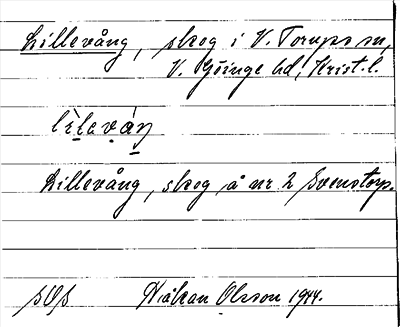 Lillevång, skog i V. Torups sn,
V. Göinge hd, Krist. l.
lìlevàŋ
Lillevång, skog å nr 2 Svenstorp.
Håkan Olsson 1944.